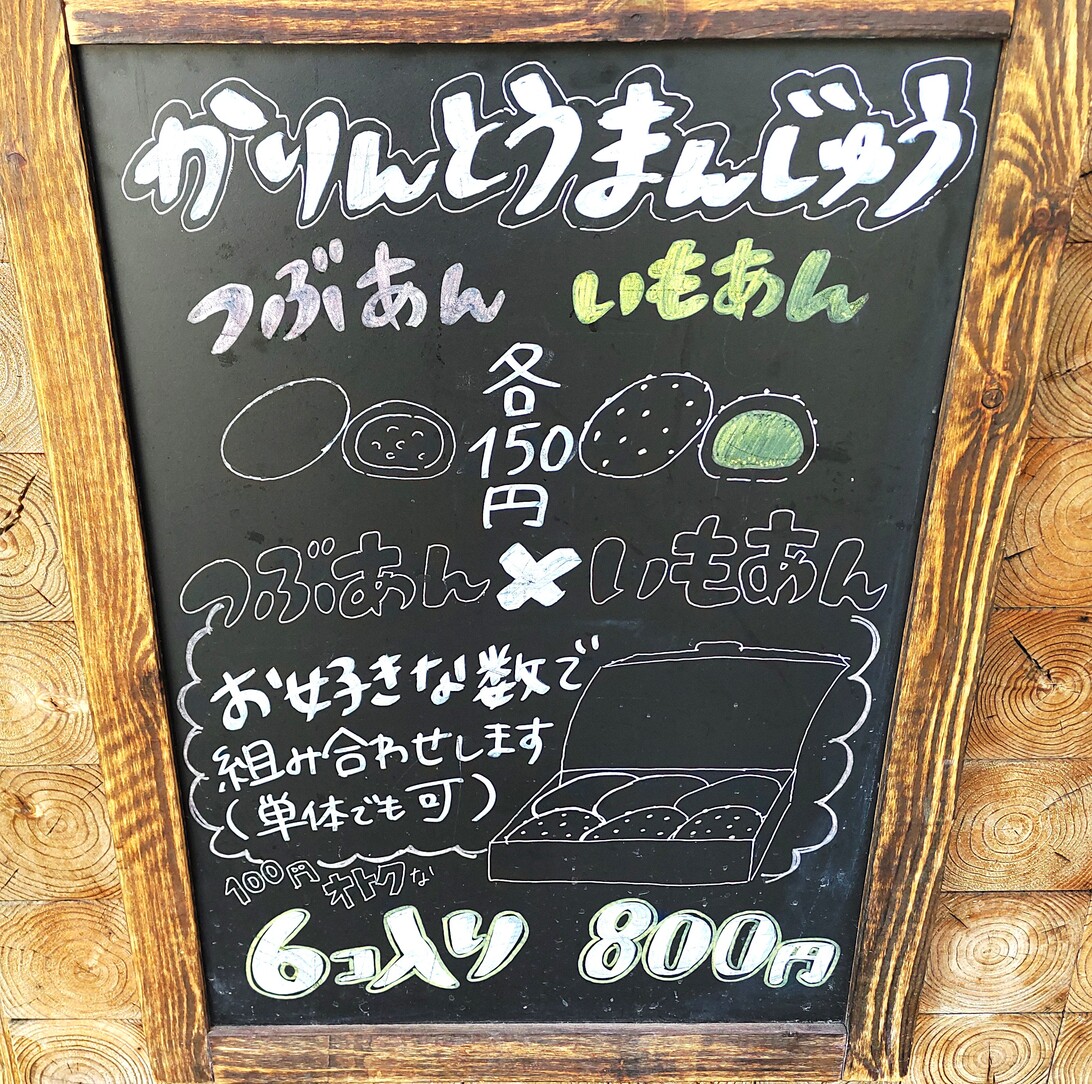 かりんとうまんじゅう
つぶあん いもあん
各
150
円
つぶあん×いもあん
お好きな数で
組み合わせします
(単体でも可)
100円オトクな
6コ入り 800円